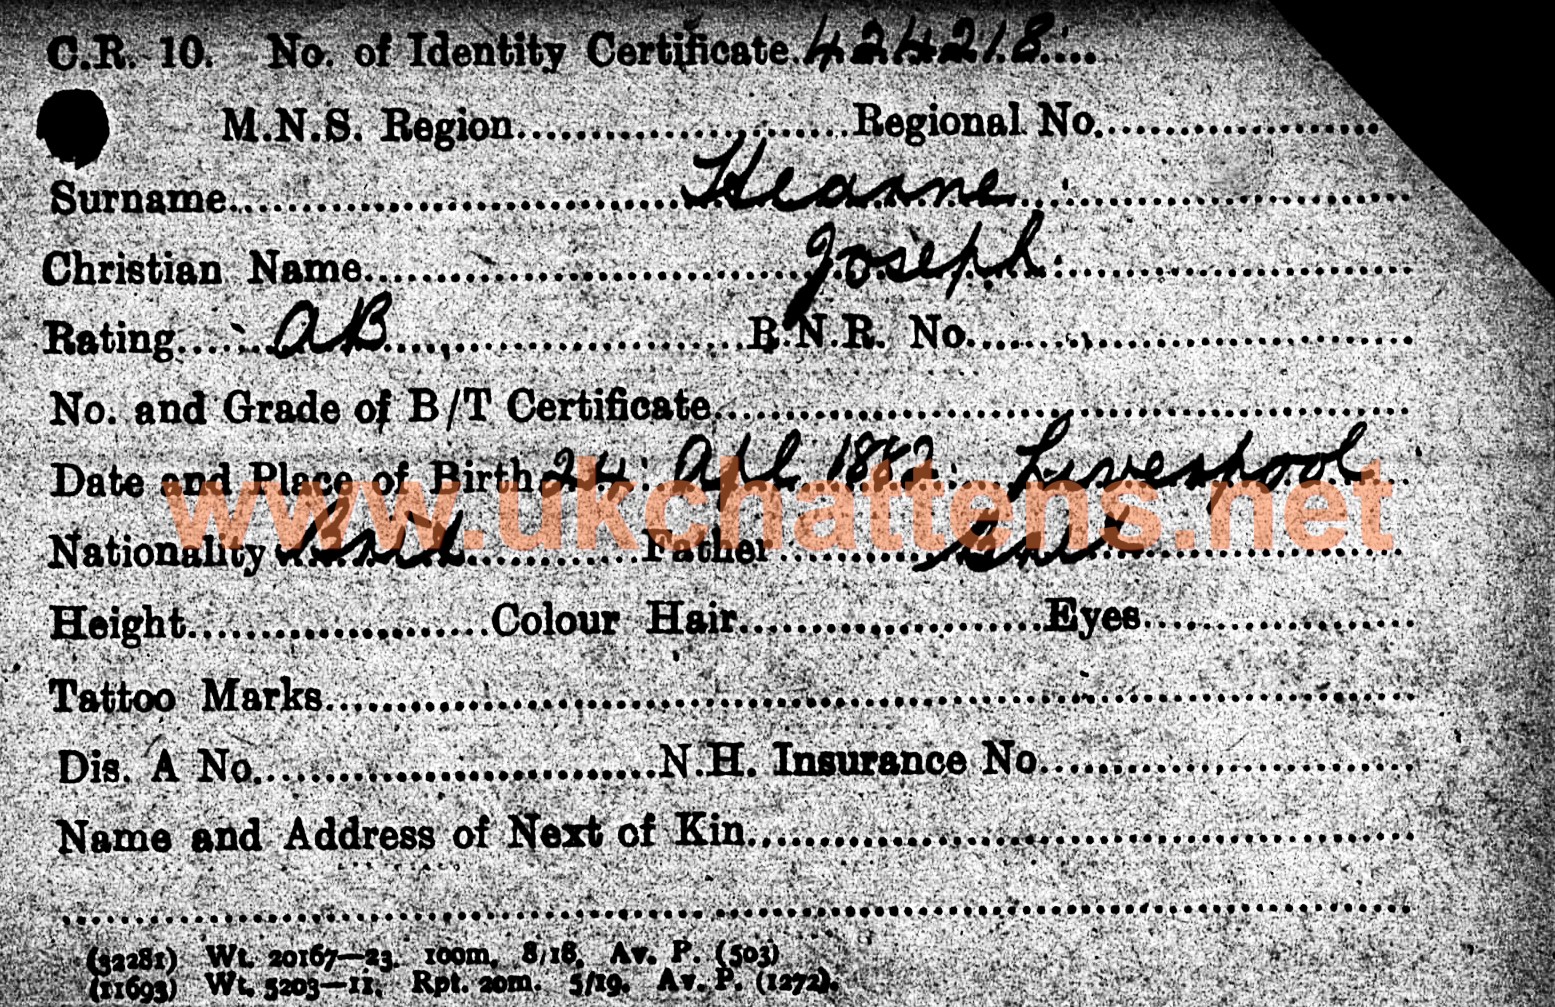 C.R. 10. No. of Identity Certificate. 424218
M.N.S. Region Regional No.
Surname Hearne
Christian Name Joseph
Rating AB B.N.R. No.
No. and Grade of B/T Certificate
Date and Place of Birth 24 Apl Liverpool
www.ukchattens.net
Nationality Father
Height Colour Hair Eyes
Tattoo Marks
Dis. A No. N.H. Insurance No.
Name and Address of Next of Kin
(32281) Wt. 20167—23. 100m. 8/18. Av. P. (503)
(11693) Wt. 5203—11. Rpt. 20m. 5/19. Av. P. (1272).